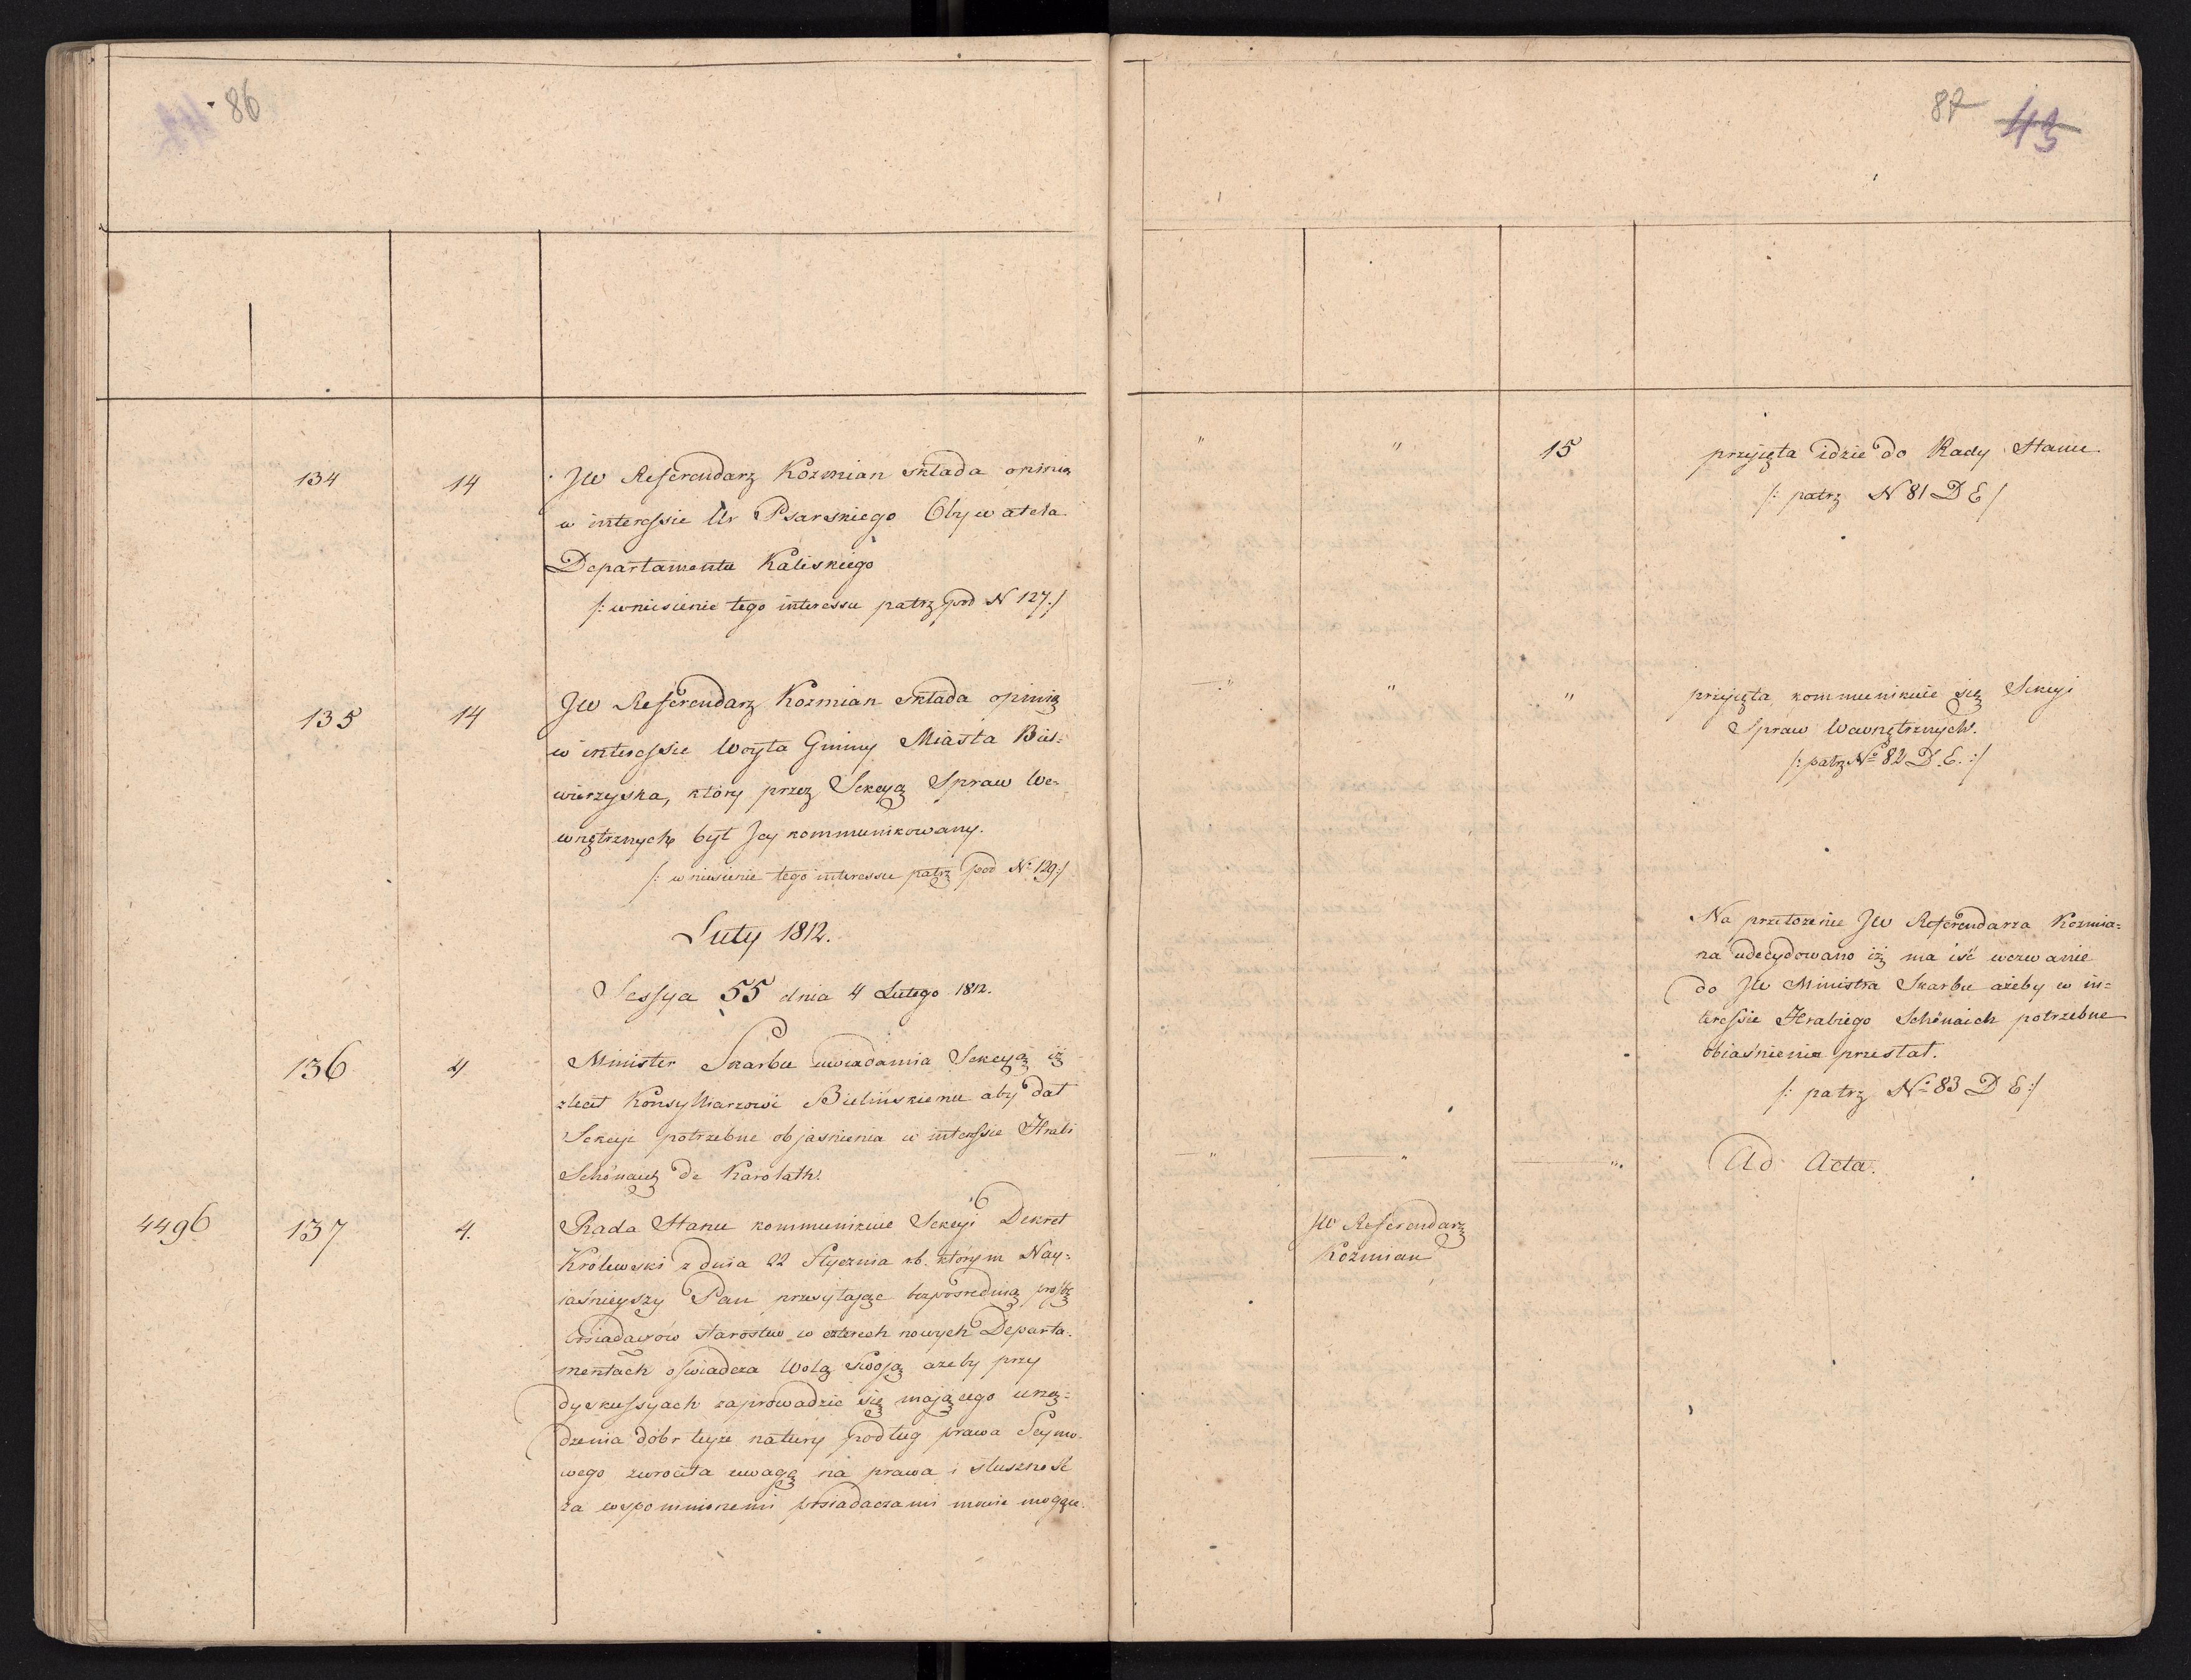 86
134
14
JW Referendarz Kozmian składa opinią
w interessie Ur Psarskiego Obywatela
Departamentu Kaliskiego
/: wniesienie tego interessu patrz pod N 127 :/
135
14
JW Referendarz Kozmian składa opinią
w interessie Woyta Gminy Miasta Bis-
wierzyska, który przez Sekcyą Spraw We-
wnętrznych był Jey kommunikowany.
/: wniesienie tego interessu patrz pod No 129 :/
Luty 1812.
Sessya 55 dnia 4 Lutego 1812.
136
4
Minister Skarbu uwiadamia Sekcyą iż
zlecił Konsylliarzowi Bielińskiemu aby dał
Sekcyi potrzebne objasnienia w interessie Hrabi
Schönaich de Karolath.
4496
137
4.
Rada Stanu kommunikuie Sekcyi Dekret
Królewski z dnia 22 Stycznia rb. którym Nay-
iaśnieyszy Pan przesyłając bezpośrednią prożbę
Posiadaczów starostw w czterech nowych Departa-
mentach oświadcza Wolą Swoją ażeby przy
dyskussyach zaprowadzic się mającego urzą-
dzenia dóbr teyże natury podług prawa Seymo-
wego zwrociła uwagę na prawa i słuszność
za wspomnionemi posiadaczami mowić mogące.
87 43
" " 15
przyjęta idzie do Rady Stanu
/: patrz N 81 D E /
" " "
przyjęta kommunikuie się Sekcyi
Spraw Wewnętrznych.
/: patrz No 82 D. E. :/
Na przełożenie JW Referendarza Kozmia-
na udecydowano iż ma iść wezwanie
do JW Ministra Skarbu ażeby w in-
teressie Hrabiego Schönaich potrzebne
obiaśnienia przesłał.
/: patrz No 83 D E :/
" " "
Ad Acta.
JW Referendarz
Kozmian